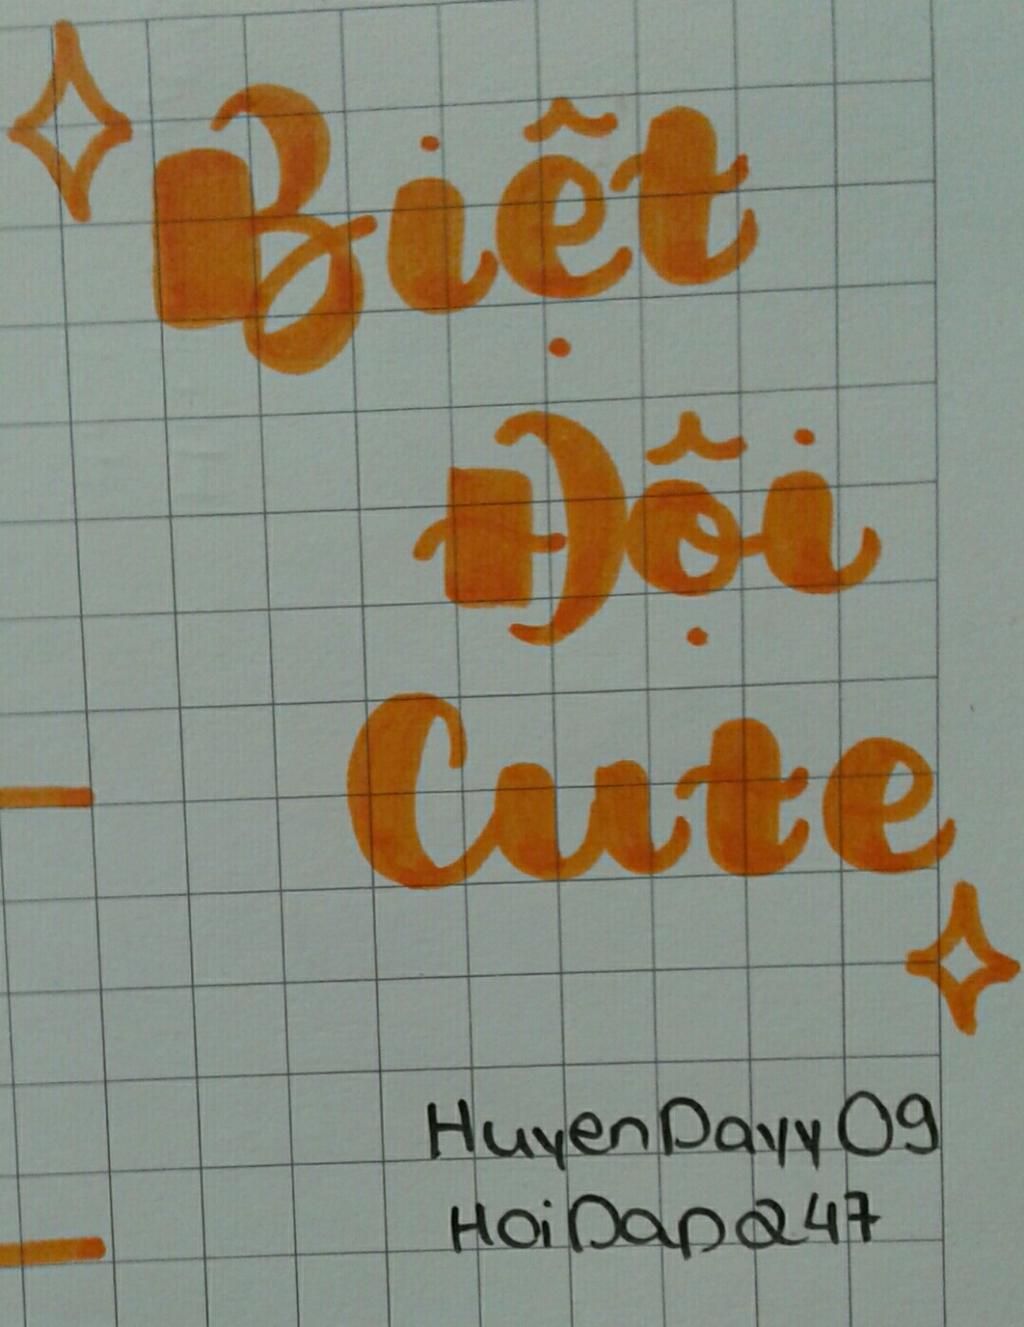 Biệt
Đội
Cute
HuyenDayy09
HoiDap247